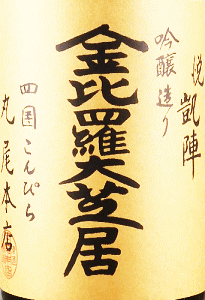 悦凱陣
吟醸造り
金比羅大芝居
四国こんぴら
丸尾本店